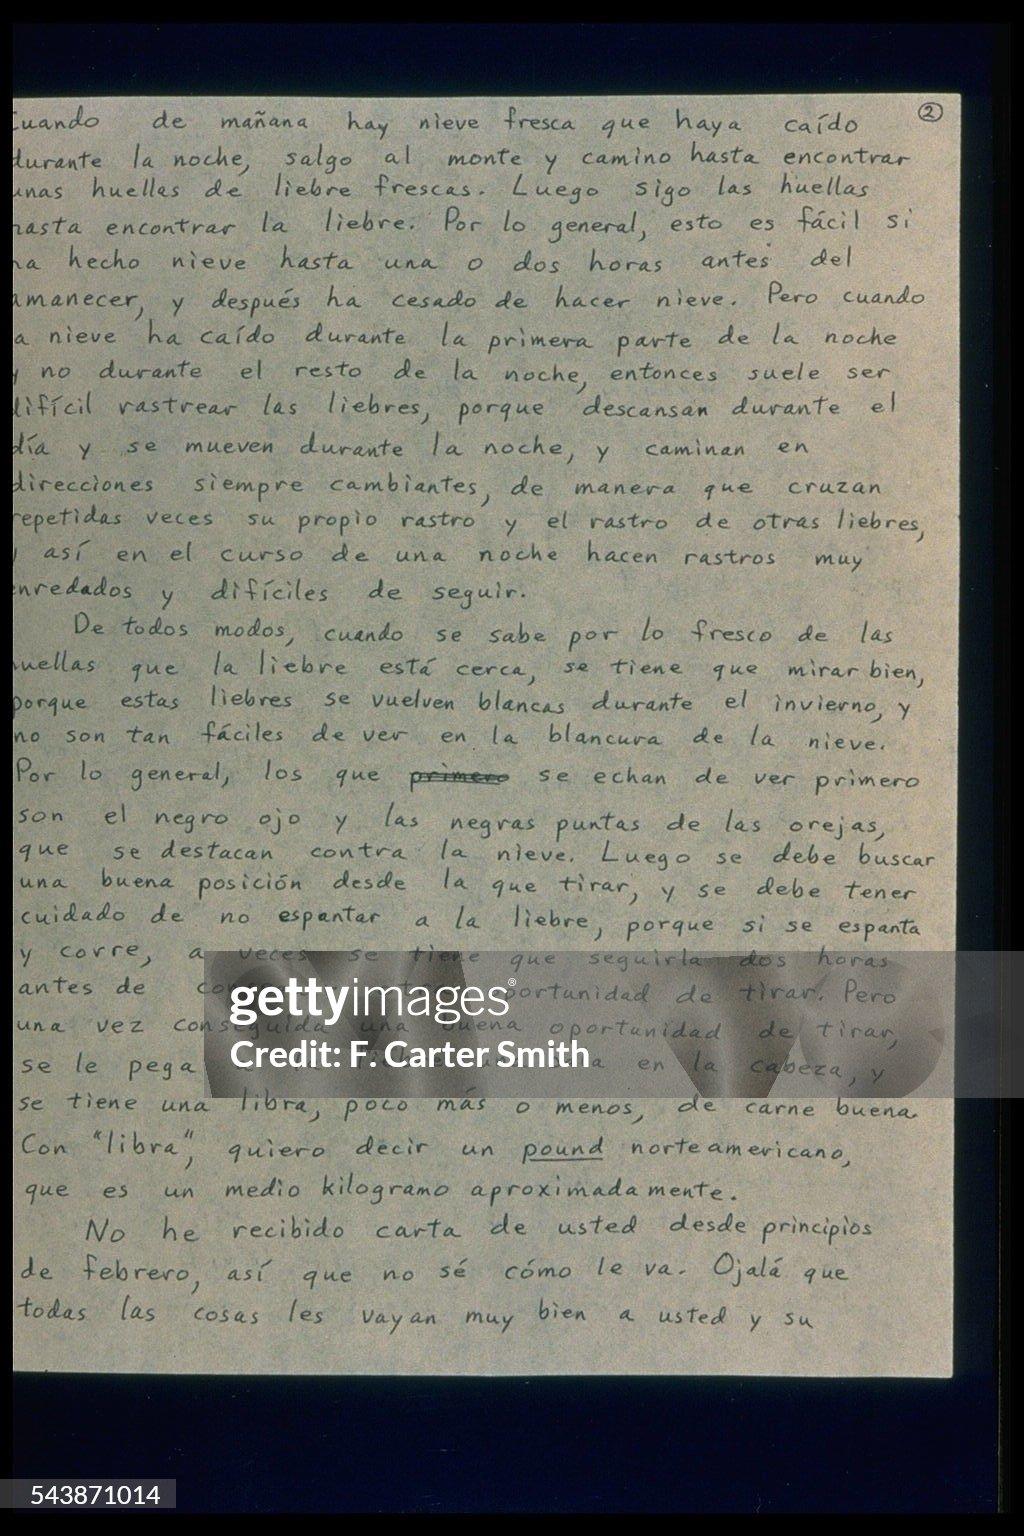 ②
Cuando de mañana hay nieve fresca que haya caído
durante la noche, salgo al monte y camino hasta encontrar
unas huellas de liebre frescas. Luego sigo las huellas
hasta encontrar la liebre. Por lo general, esto es fácil si
ha hecho nieve hasta una o dos horas antes del
amanecer, y después ha cesado de hacer nieve. Pero cuando
la nieve ha caído durante la primera parte de la noche
y no durante el resto de la noche, entonces suele ser
difícil rastrear las liebres, porque descansan durante el
día y se mueven durante la noche, y caminan en
direcciones siempre cambiantes, de manera que cruzan
repetidas veces su propio rastro y el rastro de otras liebres,
y así en el curso de una noche hacen rastros muy
enredados y difíciles de seguir.
De todos modos, cuando se sabe por lo fresco de las
huellas que la liebre está cerca, se tiene que mirar bien,
porque estas liebres se vuelven blancas durante el invierno, y
no son tan fáciles de ver en la blancura de la nieve.
Por lo general, los que primero se echan de ver primero
son el negro ojo y las negras puntas de las orejas,
que se destacan contra la nieve. Luego se debe buscar
una buena posición desde la que tirar, y se debe tener
cuidado de no espantar a la liebre, porque si se espanta
y corre, a veces se tiene que seguirla dos horas
antes de oportunidad de tirar. Pero
una vez conseguida una buena oportunidad de tirar,
se le pega en la cabeza, y
se tiene una libra, poco más o menos, de carne buena.
Con "libra", quiero decir un pound norteamericano,
que es un medio kilogramo aproximadamente.
No he recibido carta de usted desde principios
de febrero, así que no sé cómo le va. Ojalá que
todas las cosas les vayan muy bien a usted y su
gettyimages®
Credit: F. Carter Smith
543871014